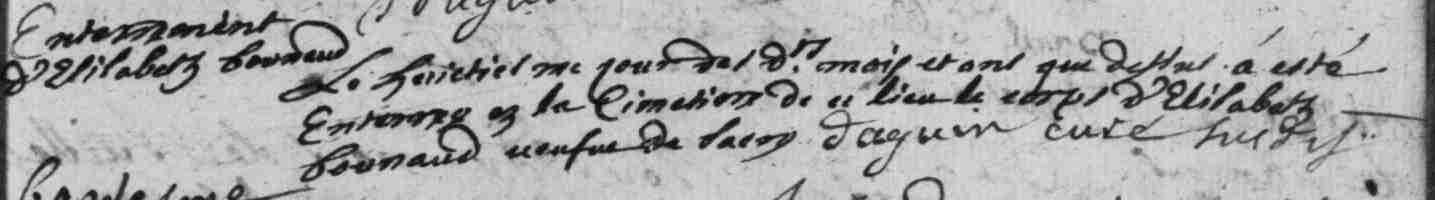 Enterrement
d'Elisabetz bounaud
Le huictiesme jour des d.ts mois et ans que dessus a esté
Enterree en la Cimetiere de ce lieu le corps d'Elisabetz
bounaud veufue de
daguin curé susdit